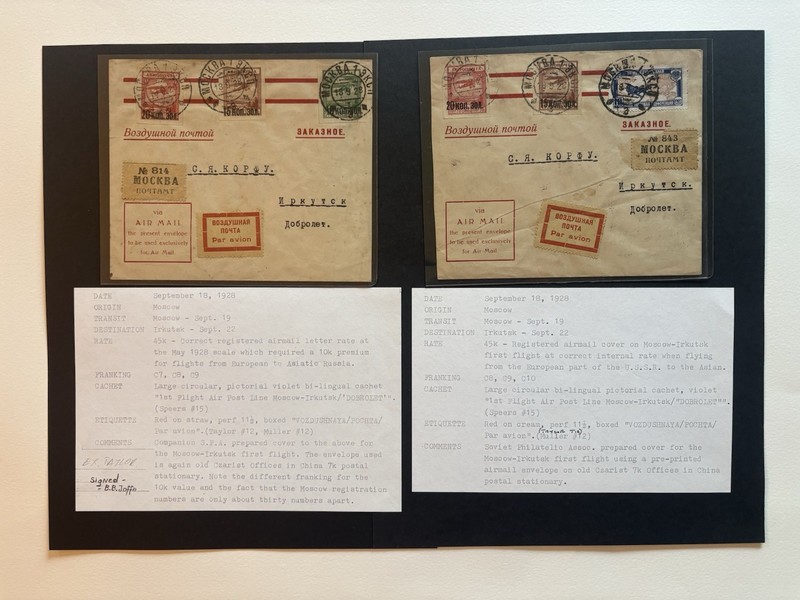 МОСКВА 1 ЭКСП
18-9-28
20 КОП. ЗОЛ.
15 КОП. ЗОЛ.
10 КОП. ЗОЛ.
Воздушной почтой
ЗАКАЗНОЕ.
№ 814
МОСКВА
ПОЧТАМТ
С.Я. КОРФУ.
Иркутск
Добролет.
via
AIR MAIL
the present envelope
to be used exclusively
for Air Mail
ВОЗДУШНАЯ
ПОЧТА
Par avion
МОСКВА 1 ЭКСП
20 КОП. ЗОЛ.
15 КОП. ЗОЛ.
Воздушной почтой
ЗАКАЗНОЕ.
№ 843
МОСКВА
ПОЧТАМТ
С.Я. КОРФУ.
Иркутск.
Добролет.
via
AIR MAIL
the present envelope
to be used exclusively
for Air Mail
ВОЗДУШНАЯ
ПОЧТА
Par avion
DATE September 18, 1928
ORIGIN Moscow
TRANSIT Moscow - Sept. 19
DESTINATION Irkutsk - Sept. 22
RATE 45k - Correct registered airmail letter rate at
the May 1928 scale which required a 10k premium
for flights from European to Asiatic Russia.
FRANKING C7, C8, C9
CACHET Large circular, pictorial violet bi-lingual cachet
"1st Flight Air Post Line Moscow-Irkutsk/"DOBROLET"".
(Speers #15)
ETIQUETTE Red on straw, perf 11½, boxed "VOZDUSHNAYA/POCHTA/
Par avion".(Taylor #12, Muller #12)
COMMENTS Companion S.P.A. prepared cover to the above for
the Moscow-Irkutsk first flight. The envelope used
is again old Czarist Offices in China 7k postal
stationary. Note the different franking for the
10k value and the fact that the Moscow registration
numbers are only about thirty numbers apart.
EX TAYLOR
Signed -
- B.B. Joffe
DATE September 18, 1928
ORIGIN Moscow
TRANSIT Moscow - Sept. 19
DESTINATION Irkutsk - Sept. 22
RATE 45k - Registered airmail cover on Moscow-Irkutsk
first flight at correct internal rate when flying
from the European part of the U.S.S.R. to the Asian.
FRANKING C8, C9, C10
CACHET Large circular bi-lingual pictorial cachet, violet
"1st Flight Air Post Line Moscow-Irkutsk/"DOBROLET"".
(Speers #15)
ETIQUETTE Red on cream, perf 11½, boxed "VOZDUSHNAYA/POCHTA/
Par avion".(Muller #12)
COMMENTS Soviet Philatelic Assoc. prepared cover for the
Moscow-Irkutsk first flight using a pre-printed
airmail envelope on old Czarist 7k Offices in China
postal stationary.